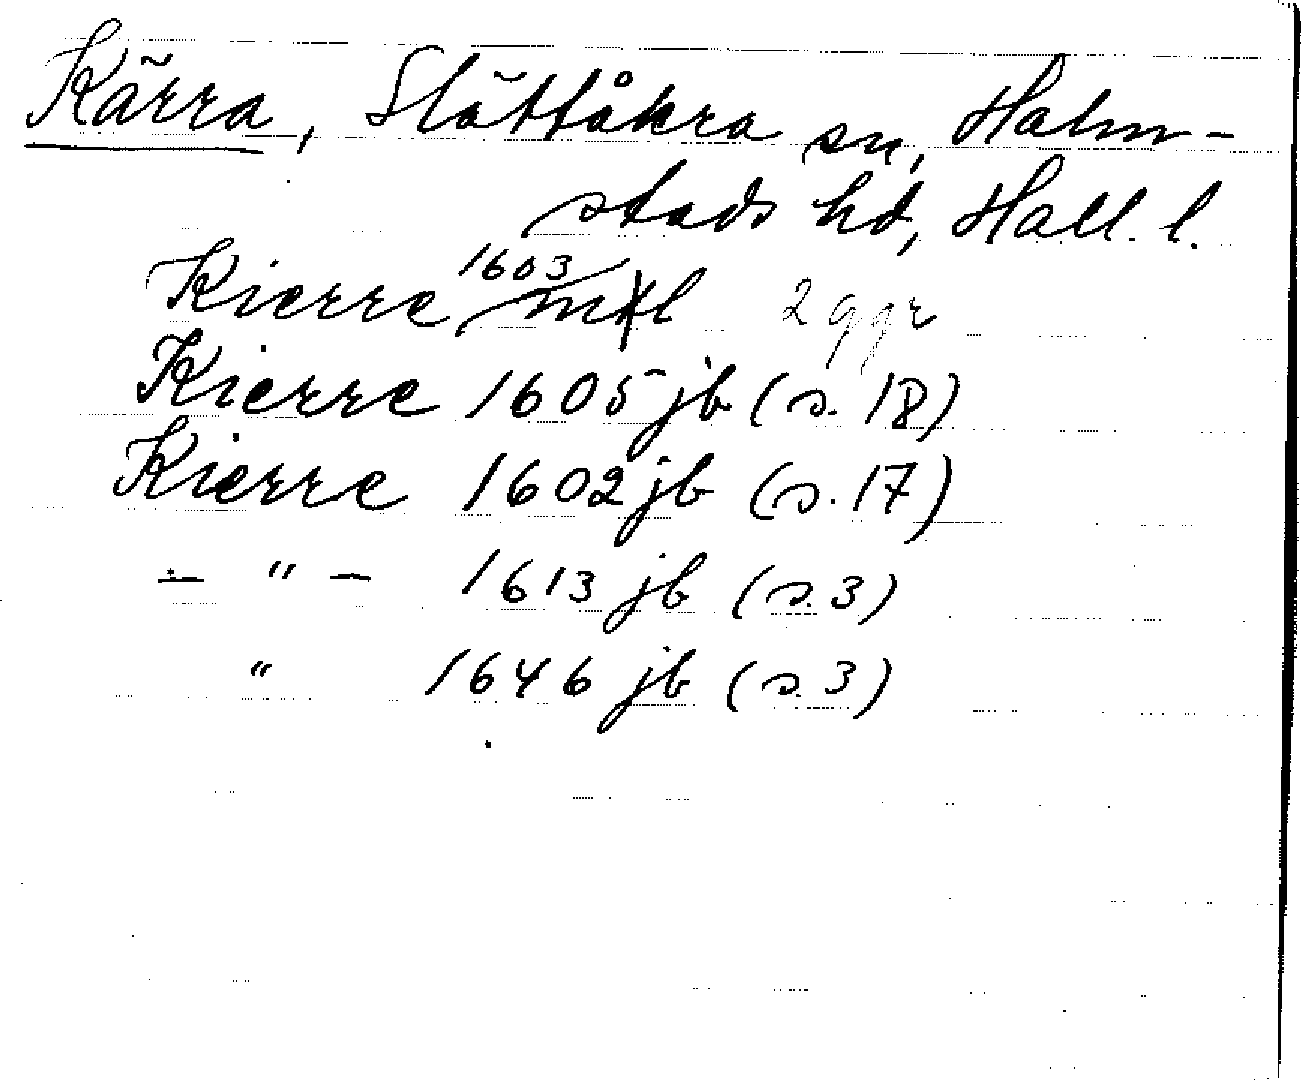 Kärra, Slättåkra sn, Halm-
stads hd, Hall. l.
Kierre 1603 mtl 2 ggr
Kierre 1605 jb (s. 18)
Kierre 1602 jb (s. 17)
— " — 1613 jb (s. 3)
" 1646 jb (s. 3)